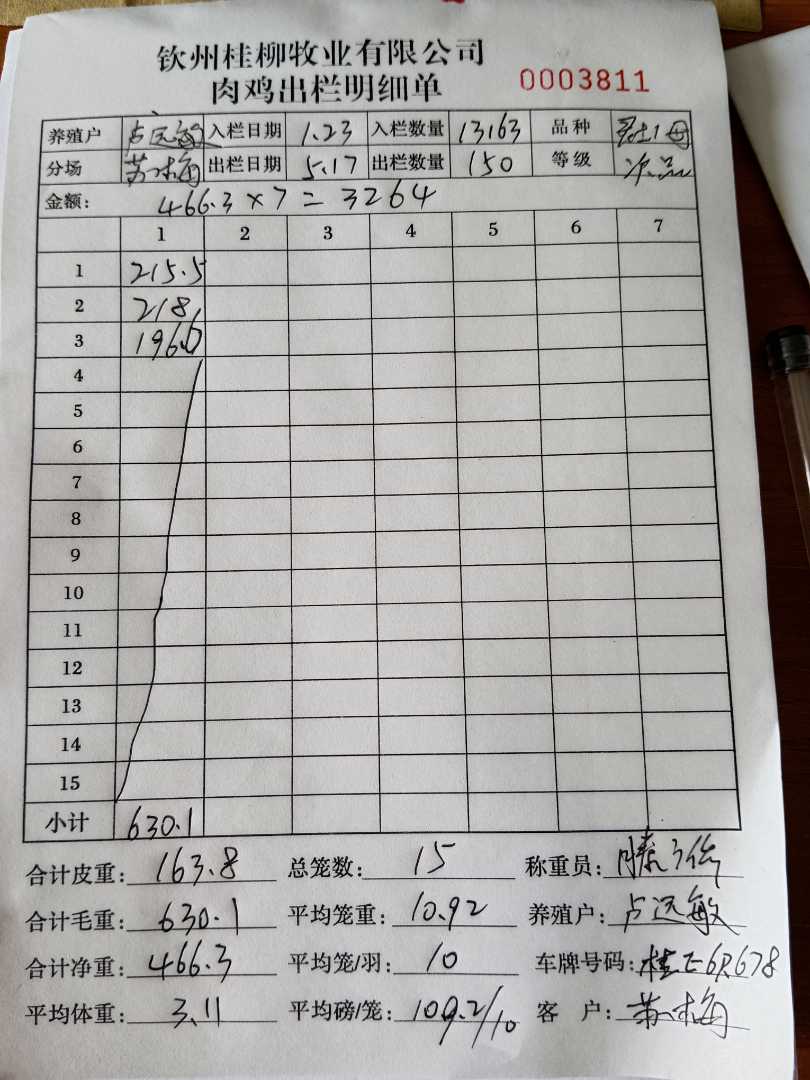 钦州桂柳牧业有限公司
肉鸡出栏明细单 0003811
养殖户 卢远敏 入栏日期 1.23 入栏数量 13163 品种 母
分场 苏海 出栏日期 5.17 出栏数量 150 等级 次品
金额: 466.3×7=3264
1 2 3 4 5 6 7
1 215.5
2 218
3 196.6
4
5
6
7
8
9
10
11
12
13
14
15
小计 630.1
合计皮重: 163.8 总笼数: 15 称重员:
合计毛重: 630.1 平均笼重: 10.92 养殖户: 卢远敏
合计净重: 466.3 平均笼/羽: 10 车牌号码: 桂E6R678
平均体重: 3.11 平均磅/笼: 109.2/10 客 户: 苏海